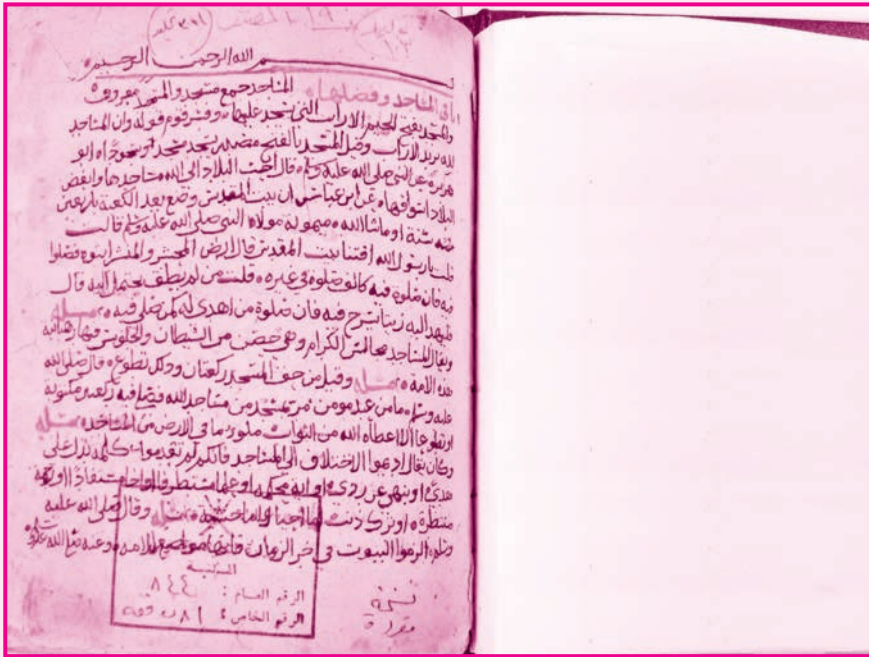 بسم الله الرحمن الرحيم
باب في المساجد وفضلها المساجد جمع مسجد والمسجد معروف
والمسجد بفتح الجيم الاراب التي يسجد عليها وفسر قوم قوله وان المساجد
لله يريد الاراب وقيل المسجد بالفتح مصدر يسجد سجدا وسجودا ابو
هريرة عن النبي صلى الله عليه وسلم قال احب البلاد الى الله مساجدها وابغض
البلاد اسواقها عن ابن عباس ان بيت المقدس وضع بعد الكعبة باربعين
سنة او ماشا الله ميمونة مولاة النبي صلى الله عليه وسلم قالت
قلت يرسول الله افتنا بيت المقدس قال ارض المحشر والمنشر ايتوه فصلوا
فيه فان صلوة فيه كالف صلوة في غيره قلت من لم يطق يحتمل اليه قال
فليهد اليه زيتا يسرج فيه فان صلوة من اهدى له كمن صلى فيه مسله
ويقال المساجد مجالس الكرام وهي حصن من الشيطان والجلوس فيها رهبانية
هذه الامة مسله وقيل من حق المسجد ركعتان وذلك تطوع قال صلى الله
عليه وسلم ما من عبد مومن يمر بمسجد من مساجد الله فيصلي فيه ركعة مكتوبة
او تطوعا الا اعطاه الله من الثواب ملو ما في الارض من المساجد مسله
وكان يقال ادعوا الاختلاف الى المساجد فانكم لم تعدموا كلمة تدل على
هدى او ينهى عن ردى او اية محكمة او علما مستطرفا او اخا مستفادا او رحمة
منتظرة او ترك ذنب اما حيا واما خشية مسله وقال صلى الله عليه
وسلم الزموا البيوت في اخر الزمان وعنه صلى الله عليه
المكتبة
الرقم العام : ٨٤٤
الرقم الخاص : ٨١ فقه
نسخة